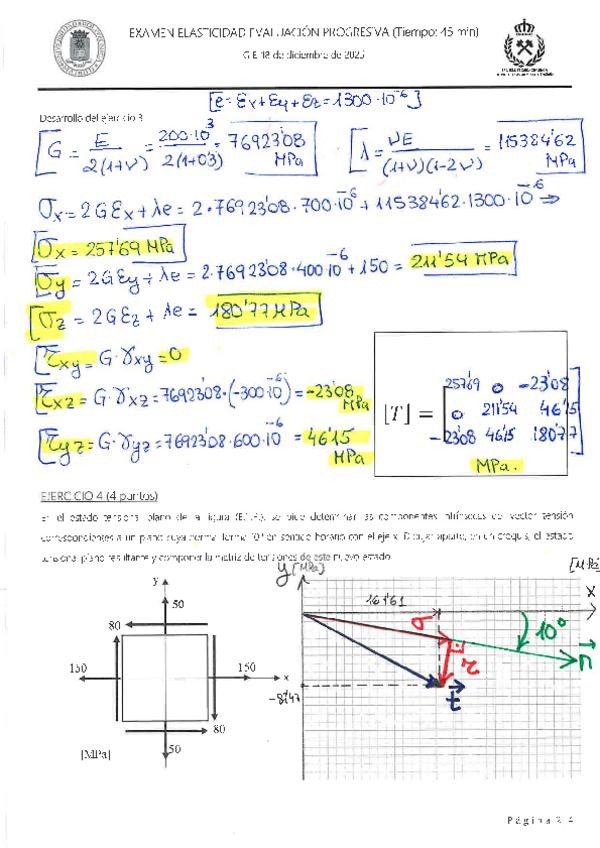 EXAMEN ELASTICIDAD EVALUACIÓN PROGRESIVA (Tiempo: 45 min)
18 de diciembre de 2025
Desarrollo del ejercicio 3
[e = εx + εy + εz = 1300·10⁻⁶]
G = E / 2(1+ν) = 200·10³ / 2(1+0'3) = 76923'08 MPa
λ = νE / (1+ν)(1-2ν) = 115384'62 MPa
σx = 2Gεx + λe = 2·76923'08·700·10⁻⁶ + 115384'62·1300·10⁻⁶ ⇒
σx = 257'69 MPa
σy = 2Gεy + λe = 2·76923'08·400·10⁻⁶ + 150 = 211'54 MPa
σz = 2Gεz + λe = 180'77 MPa
τxy = G·γxy = 0
τxz = G·γxz = 76923'08·(-300·10⁻⁶) = -23'08 MPa
τyz = G·γyz = 76923'08·600·10⁻⁶ = 46'15 MPa
[T] =
257'69 0 -23'08
0 211'54 46'15
-23'08 46'15 180'77
MPa.
EJERCICIO 4 (4 puntos)
En el estado tensional plano de la figura se pide determinar las componentes intrínsecas del vector tensión
correspondientes a un plano cuya normal forma 10° en sentido horario con el eje x. Dibujar aparte, en un croquis, el estado
tensional plano resultante y componer la matriz de tensiones de este nuevo estado.
y
50
80
150
150
x
80
50
[MPa]
y [MPa]
[MPa]
x
161'61
σ
10°
τ
n
t
-87'47
Página 2 4